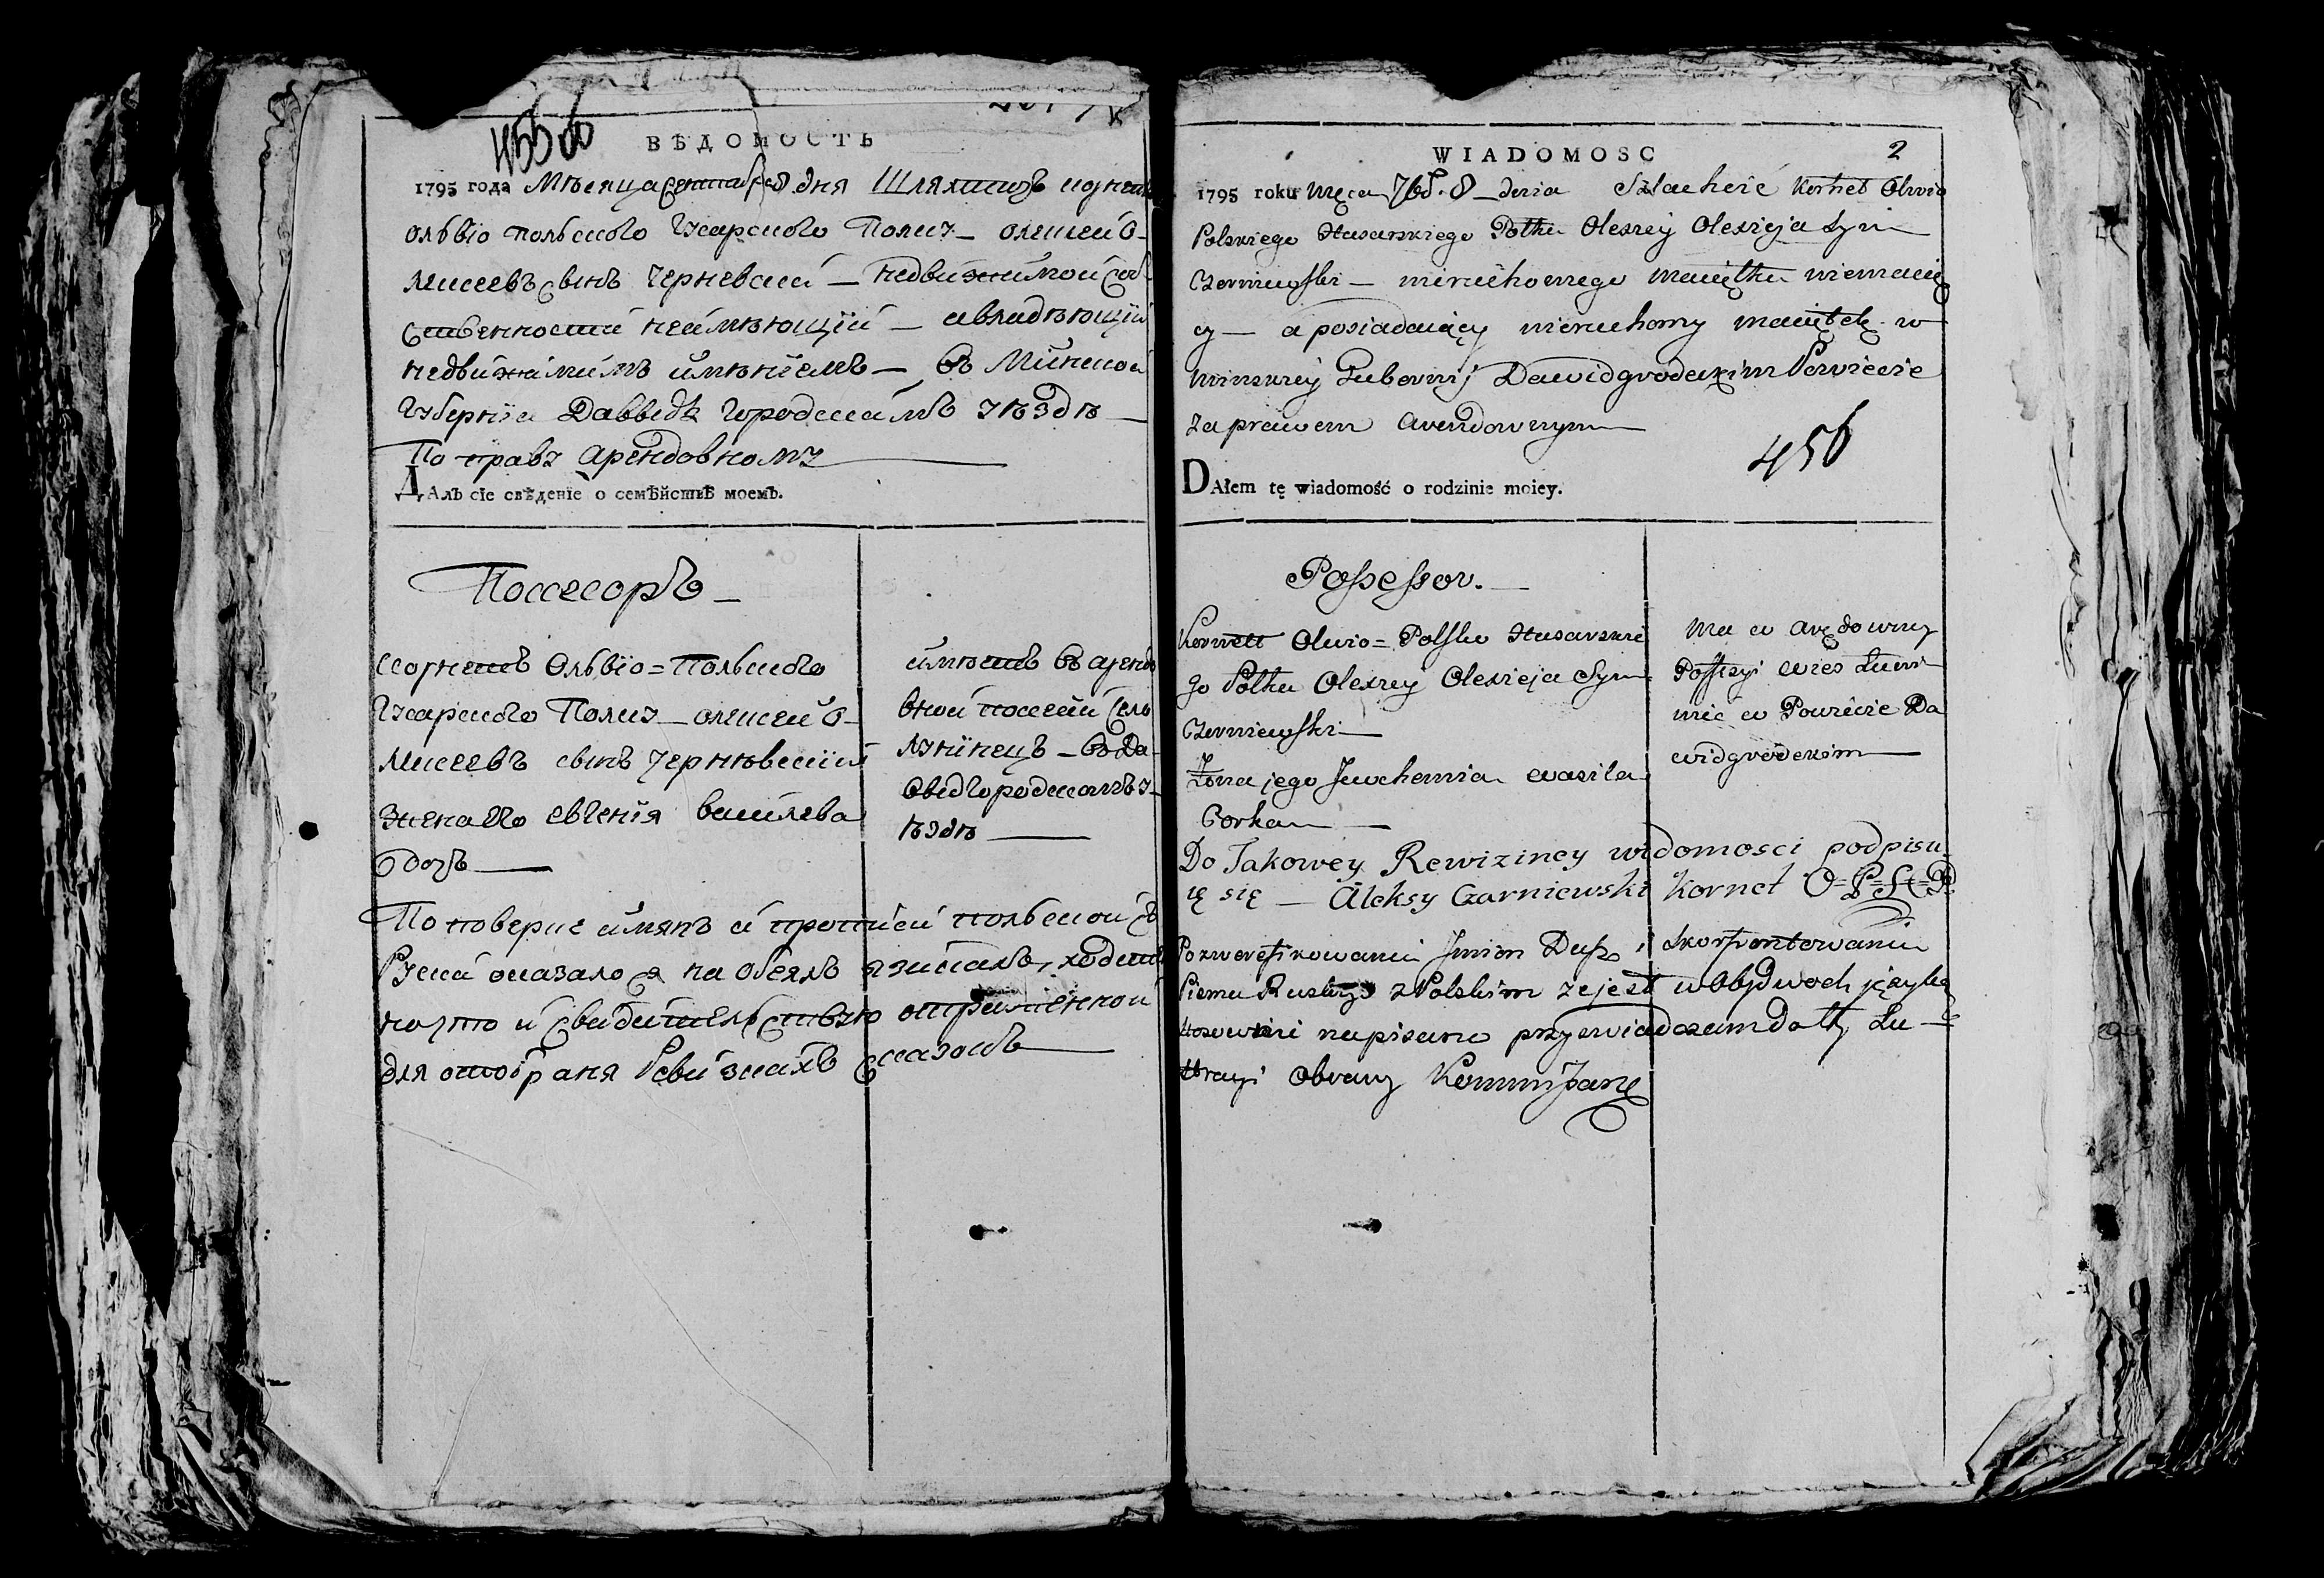 455 об
ВѢДОМОСТЬ
1795 года Мѣсяца Сентабра 8 дня Шляхтичъ корнетъ
олъвіо полъского Гусарского Полку – олексей о-
лексеевъ сынъ Черневскій – недвижимой соб
ственности неимѣющій – авладѣющій
недвижимимъ имѣніемъ – въ Мінской
Губерніи Даввидъ Городскимъ уѣздѣ –
По праву арендовному
ДАлъ сіе свѣденіе о семѣйствѣ моемъ.
Поссесоръ –
Корнетъ Олъвіо=Полъского
Гусарского Полку – олексей о-
лексеевъ сынъ Чернѣвскій
Жена его евгенія василева
дочъ
имѣетъ въ арендо
вной поссесіи село
лунінецъ – въ Да-
видгородскомъ у-
ѣздѣ
По поверке имянъ и протчей полъской съ
Руска оказалося на обеяхъ язикахъ сходст
но что и свидителствую отряженной
для отобраня Ревизскихъ сказокъ
WIADOMOSC
2
1795 roku Męca 7bŕ. 8 – dnia Szlachcić Kornet Olwio
Polskiego Husarskiego Połku Olexiey Olexieja Syn
Czerniewski – nieruchomego maiętku niemaię
cy – a posiadaiący nieruchomy maiętek w
Minskiey Gubernij Dawidgrodeckim Powiecie
za prawem arendownym
456
DAłem tę wiadomość o rodzinie moiey.
Possessor. –
Kornett Olwio=Polsko Husarskie
go Połku Olexiey Olexieja Syn
Czerniewski –
Żona jego Jewhemia Wasila
Corka –
Ma w Arędowney
Possesyi wies Łuni
niec w Powiecie Da
widgrodeckim
Do Takowey Rewiziney widomosci podpisu
ię się – Aleksy Czarniewski Kornet O=P=H=P
Po zweryfikowaniu Jmion Dusz i skonfrontowaniu
Pisma Ruskego z Polskim ze jest w Obydwoch języka
napisano przyswiadczam do tey Lu-
stracyi Obrany Kommissarz